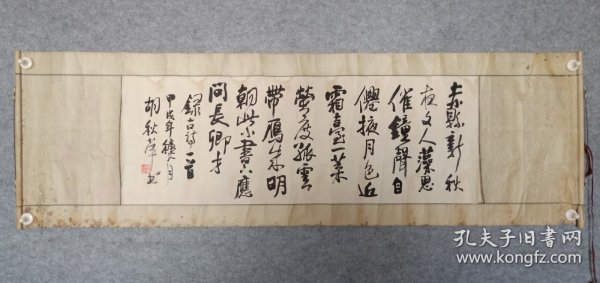 赤縣新秋
夜文人藻思
催鐘聲自
僊掖月色近
霜臺一葉
螢度孤雲
帶鴈來明
朝紫書下應
問長卿才
錄古詩一首
甲戌年八月
胡秋萍書
孔夫子旧书网
www.kongfz.com